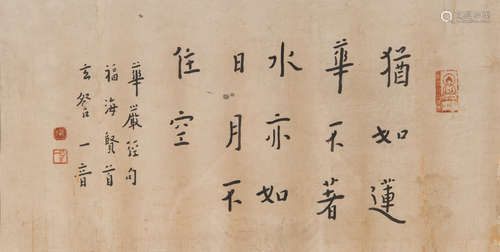 猶如蓮
華不著
水亦如
日月不
住空
華嚴經句
福海賢首
玄答一音